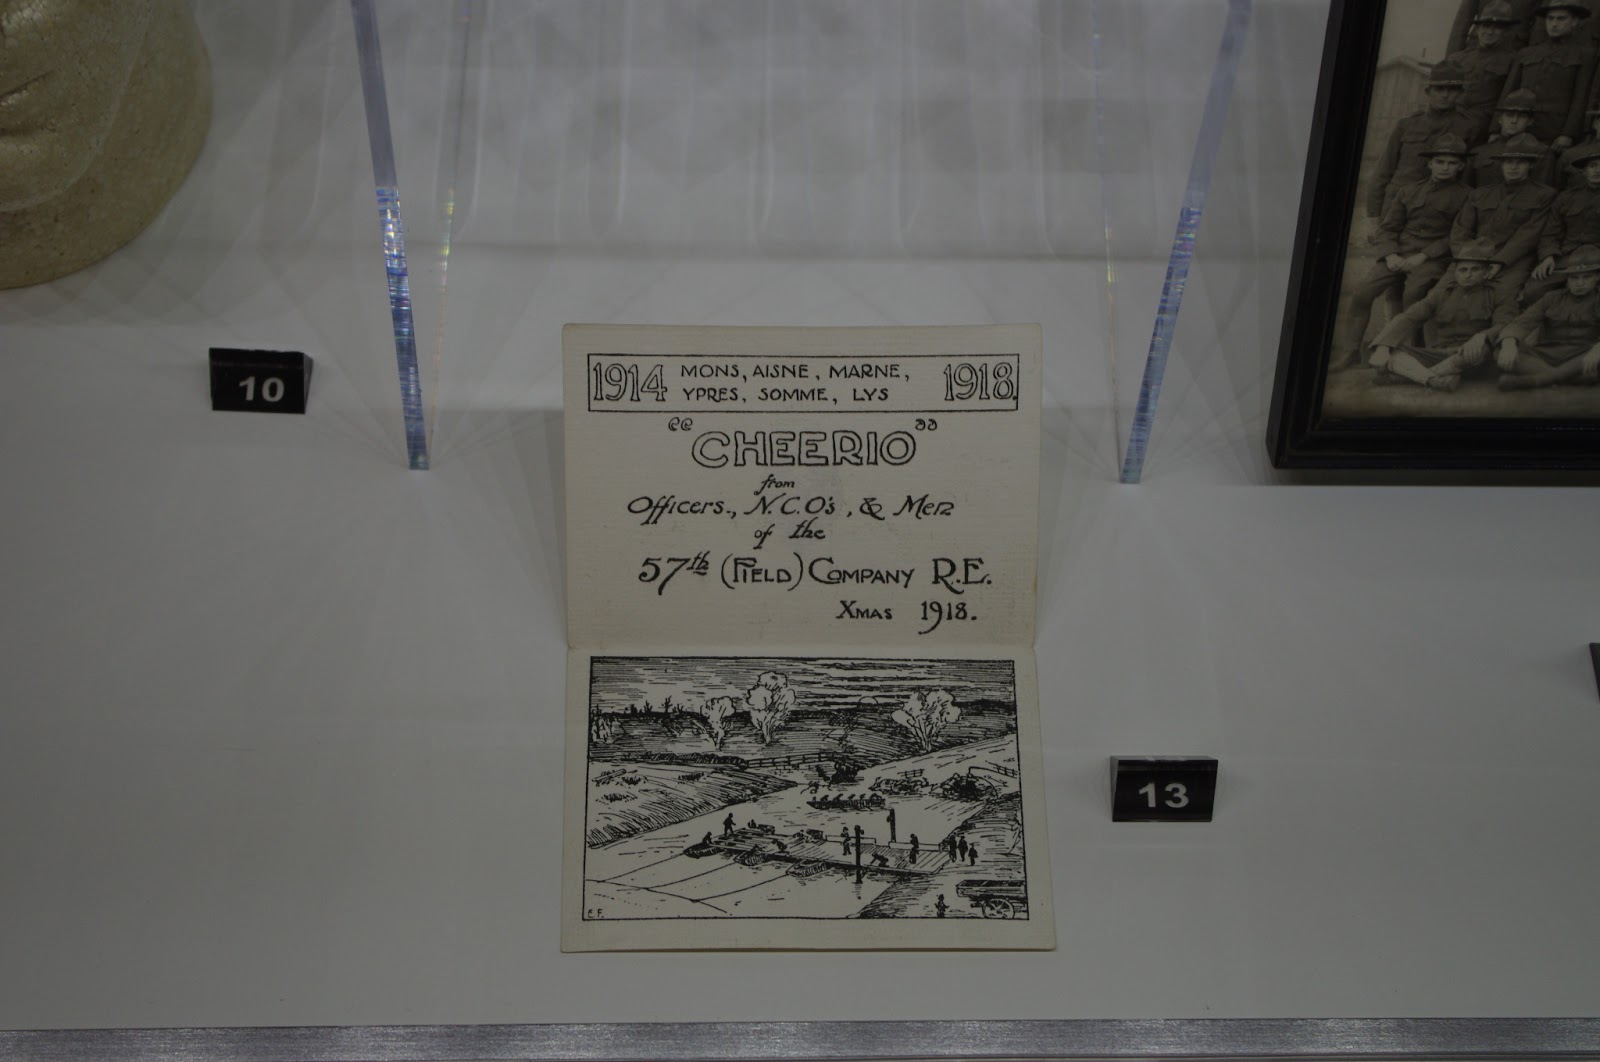 10
1914 MONS, AISNE, MARNE, 1918.
YPRES, SOMME, LYS
"CHEERIO"
from
Officers., N.C.O's, & Men
of the
57th (FIELD) COMPANY R.E.
XMAS 1918.
E.F.
13